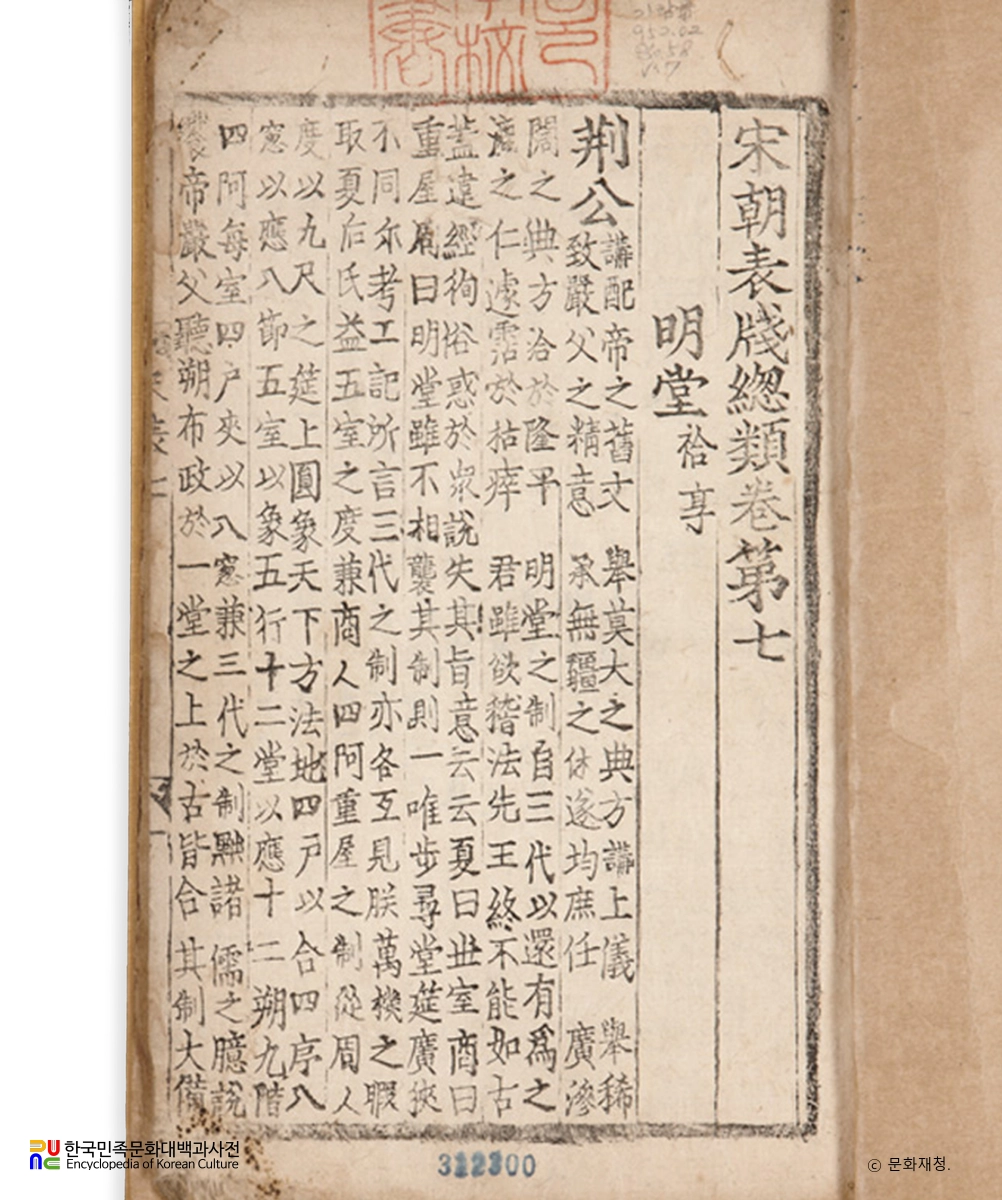 宋朝表牋緫類卷第七
明堂 祫享
荆公
講配帝之舊文 舉莫大之典方講上儀 舉稀
致嚴父之精意 承無疆之休遂均庶任 廣滲
闊之典方洽於隆平 明堂之制自三代以還有爲之
漉之仁遽霑於枯瘁 君雖欲稽法先王終不能如古
蓋違經徇俗惑於衆說失其旨意云云夏曰世室商曰
重屋周曰明堂雖不相襲其制則一唯步尋堂筵廣狹
不同尔考工記所言三代之制亦各互見朕萬機之暇
取夏后氏益五室之度兼商人四阿重屋之制從周人
度以九尺之筵上圓象天下方法地四戸以合四序八
窓以應八節五室以象五行十二堂以應十二朔九階
四阿每室四户夾以八窓兼三代之制黜諸儒之臆說
饗帝嚴父聽朔布政於一堂之上於古皆合 其制大備
322300
한국민족문화대백과사전
Encyclopedia of Korean Culture
ⓒ 문화재청.